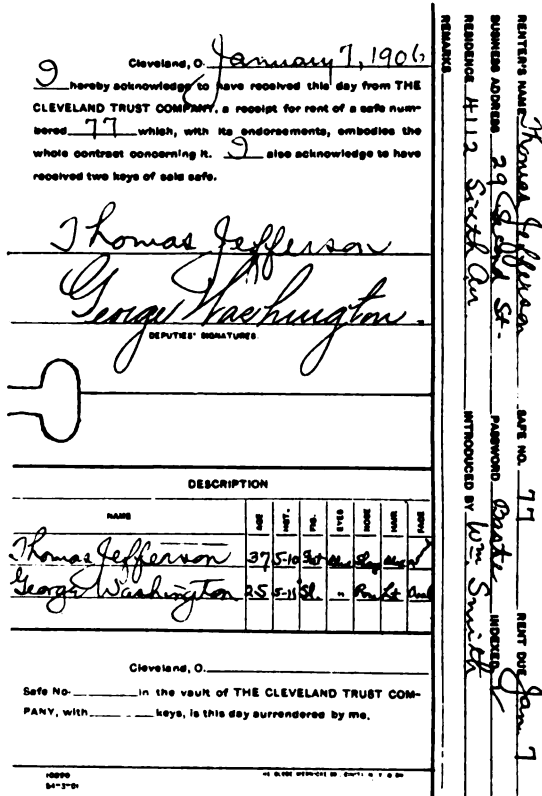 Cleveland, O. January 7, 1906
I hereby acknowledge to have received this day from THE
CLEVELAND TRUST COMPANY, a receipt for rent of a safe num-
bered 77 which, with its endorsements, embodies the
whole contract concerning it. I also acknowledge to have
received two keys of said safe.
Thomas Jefferson
George Washington
DEPUTIES' SIGNATURES.
DESCRIPTION
NAME AGE HGT. FIG. EYES NOSE HAIR FACE
Thomas Jefferson 37 5-10 Blue
George Washington 25 5-11 Sl. " Lt
Cleveland, O.
Safe No. in the vault of THE CLEVELAND TRUST COM-
PANY, with keys, is this day surrendered by me.
RENTER'S NAME Thomas Jefferson SAFE NO. 77 RENT DUE Jan 7
BUSINESS ADDRESS 29 Second St. PASSWORD INDEXED
RESIDENCE 4112 Sixth Av INTRODUCED BY Wm. Smith
REMARKS